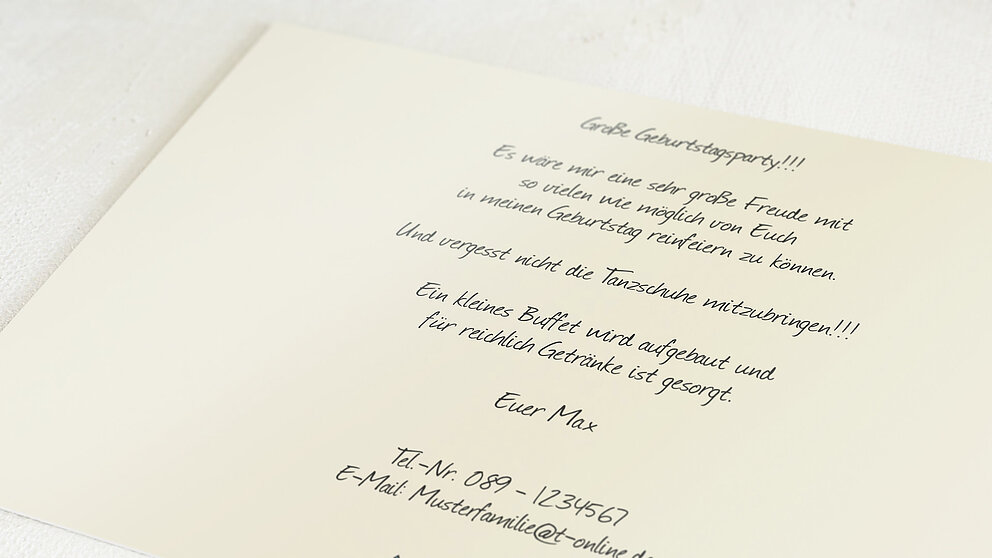 Große Geburtstagsparty!!!
Es wäre mir eine sehr große Freude mit
so vielen wie möglich von Euch
in meinen Geburtstag reinfeiern zu können.
Und vergesst nicht die Tanzschuhe mitzubringen!!!
Ein kleines Buffet wird aufgebaut und
für reichlich Getränke ist gesorgt.
Euer Max
Tel.-Nr. 089 - 1234567
E-Mail: Musterfamilie@t-online.de